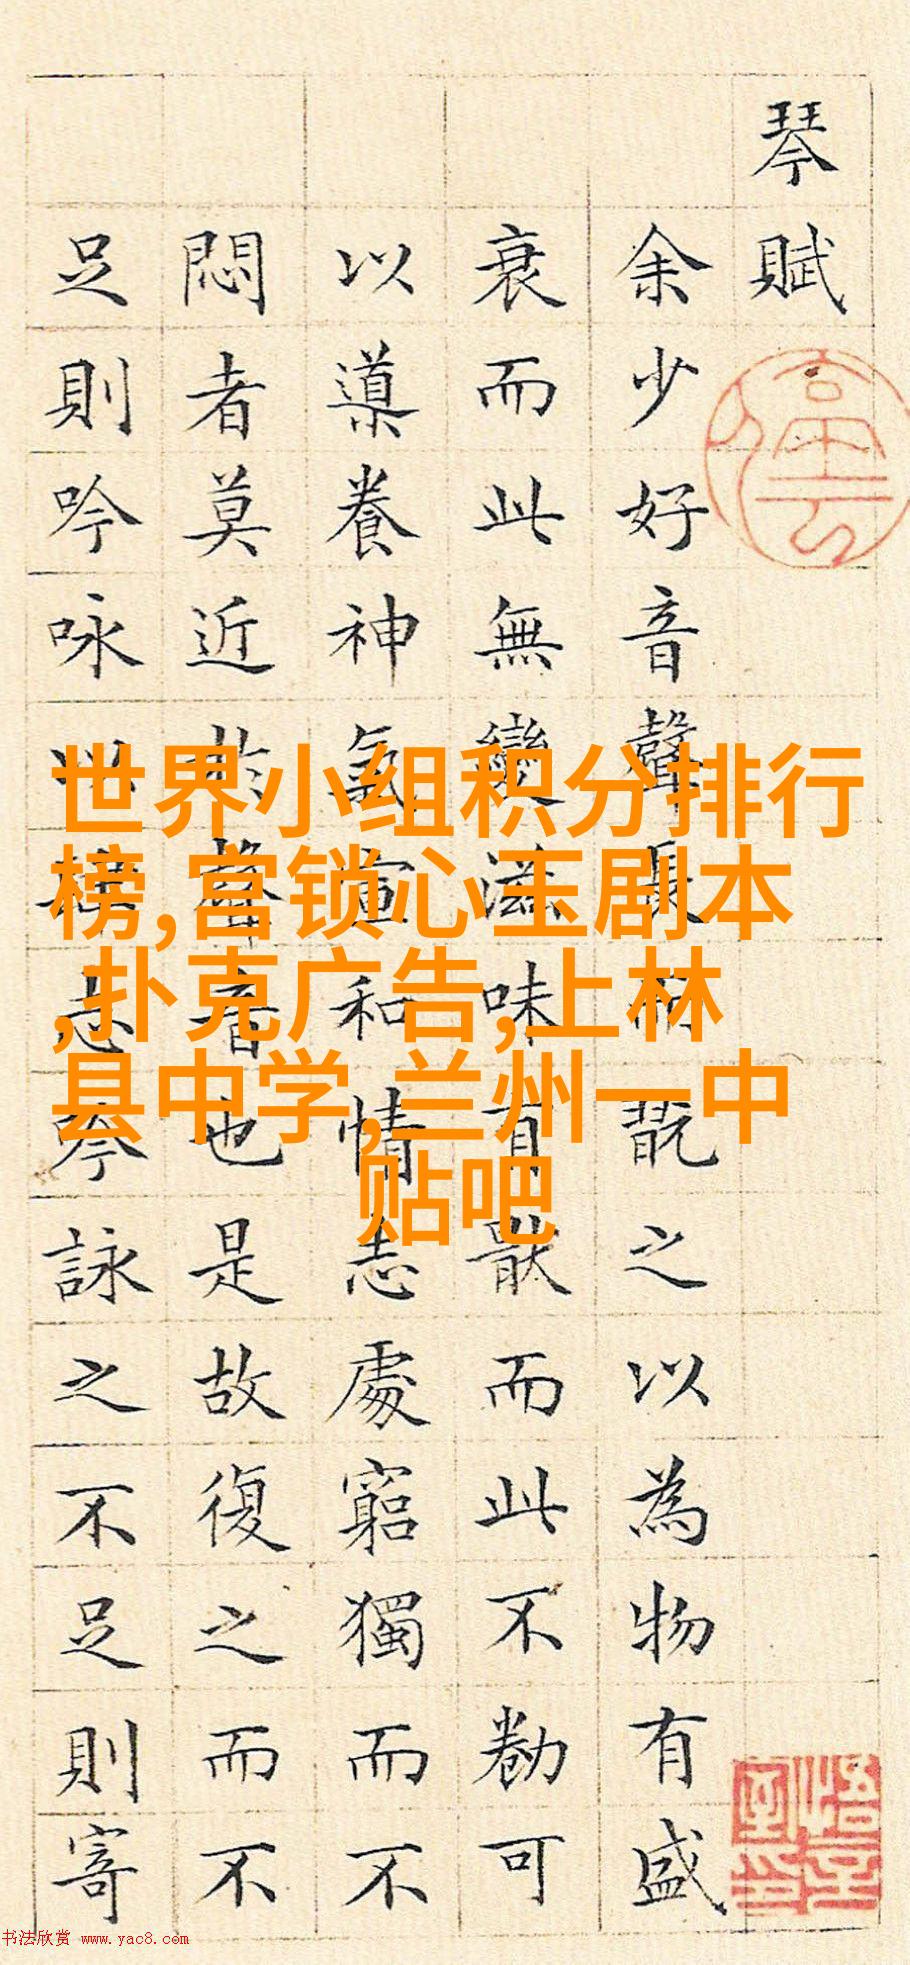 琴賦
余少好音聲長而翫之以為物有盛
衰而此無變滋味有猒而此不勌可
以導養神氣宣和情志處窮獨而不
悶者莫近於聲音也是故復之而不
足則吟咏以肆志吟詠之不足則寄
世界小组积分排行
榜,宫锁心玉剧本
,扑克广告,上林
县中学,兰州一中
贴吧
书法欣赏 www.yac8.com